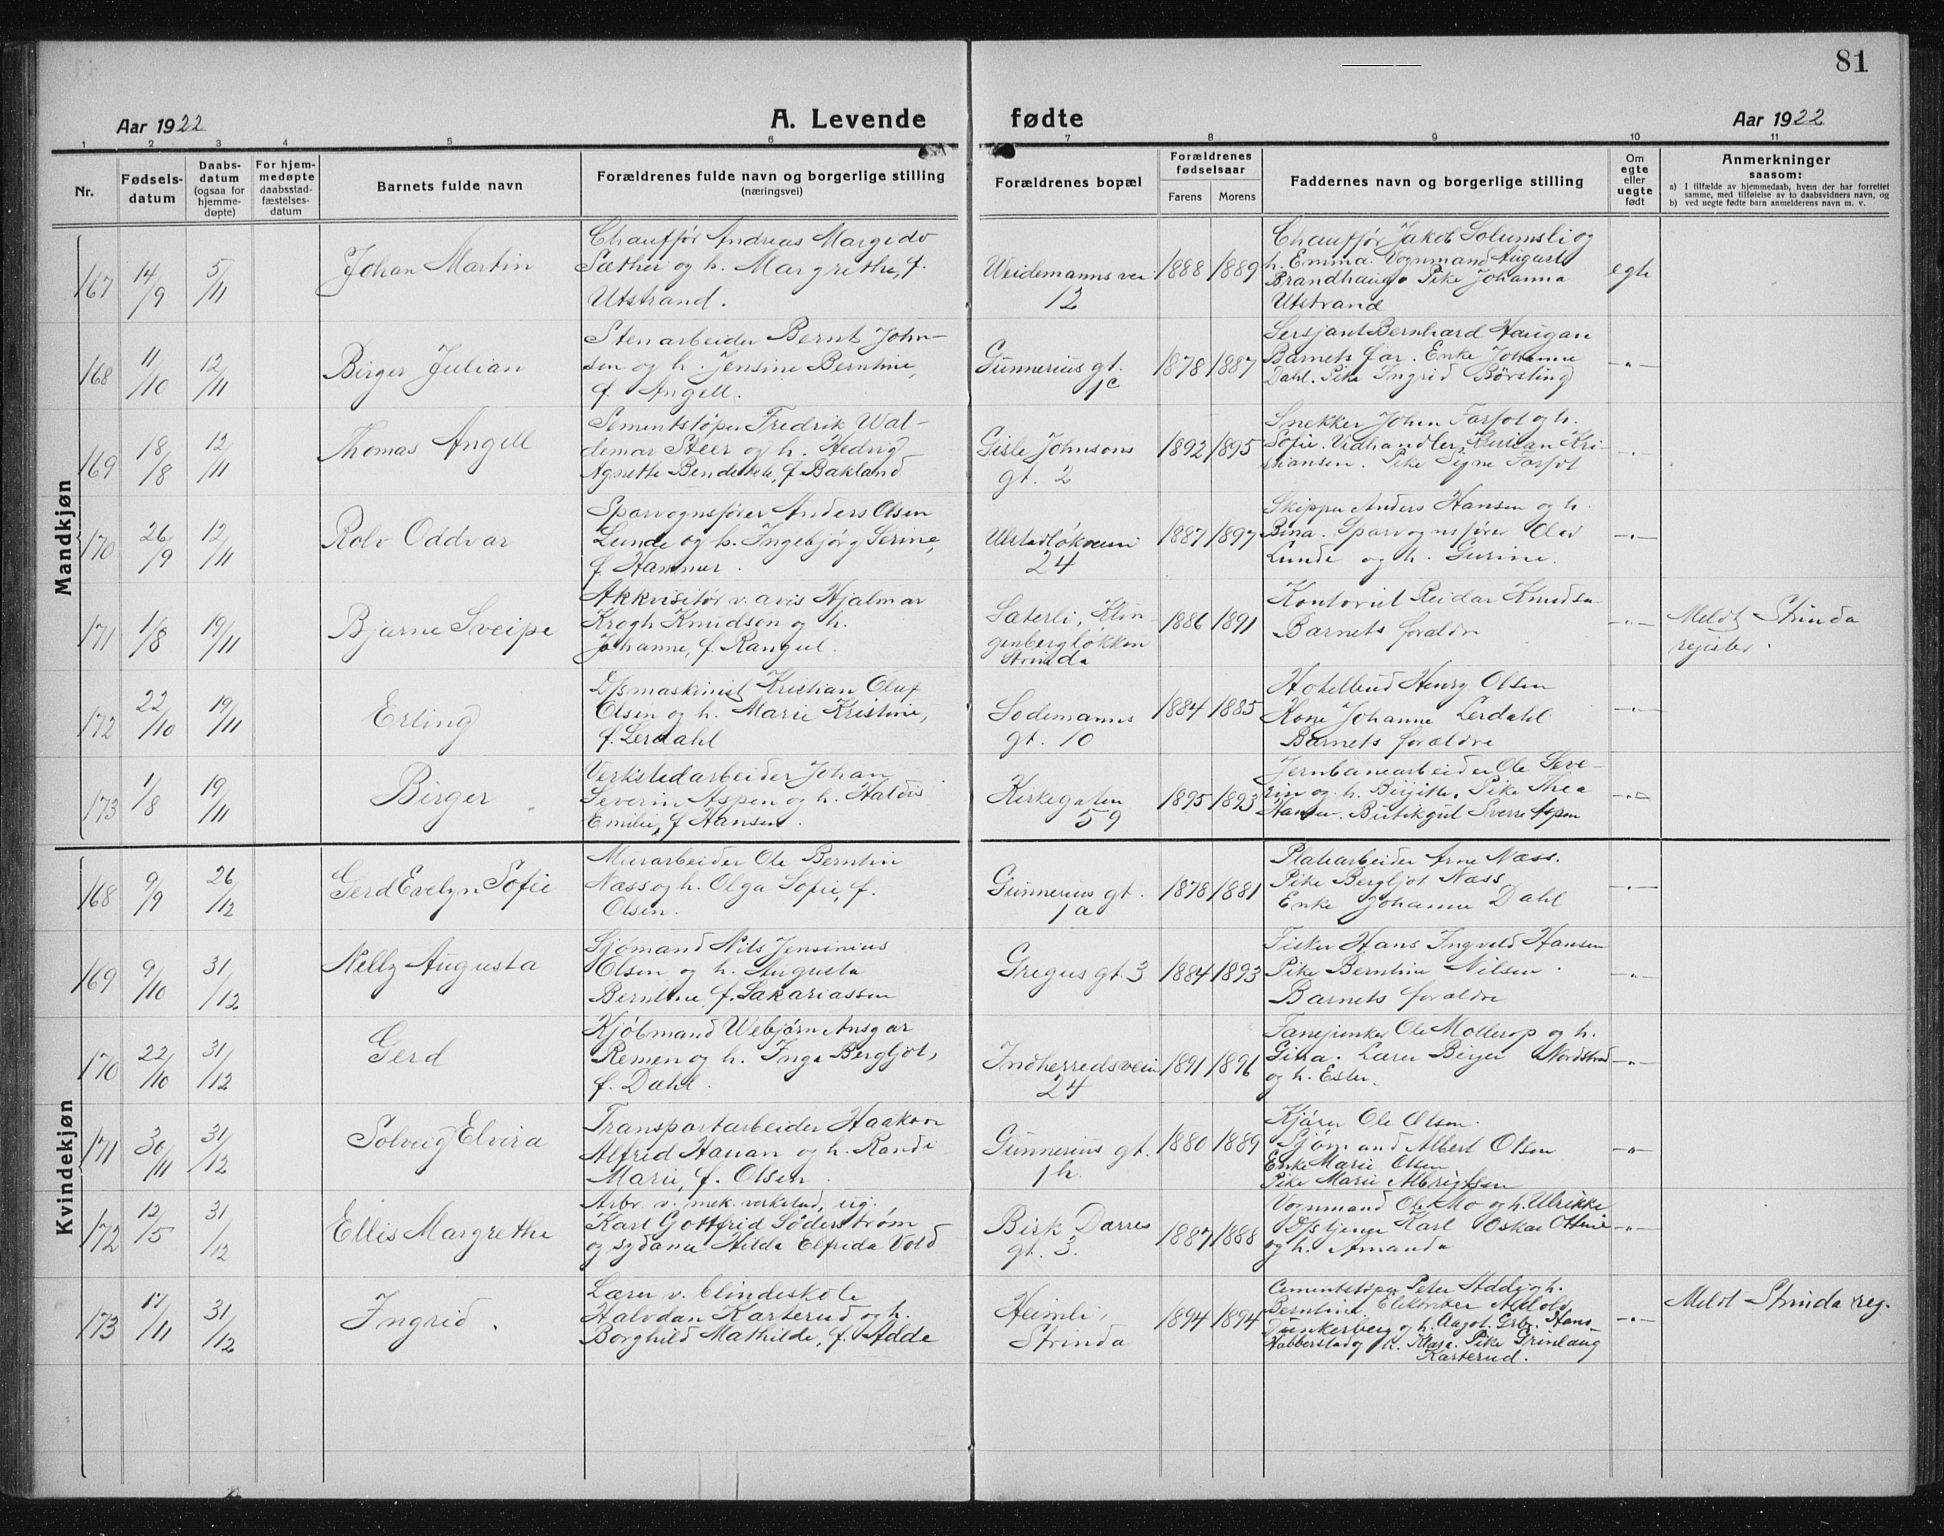 81
Aar 1922
A. Levende fødte
Aar 1922
1 2 3 4 5 6 7 8 9 10 11
Nr.
Fødsels-
datum
Daabs-
datum
(ogsaa for
hjemme-
døpte)
For hjem-
medøpte
daabsstad-
fæstelses-
datum
Barnets fulde navn
Forældrenes fulde navn og borgerlige stilling
(næringsvei)
Forældrenes bopæl
Forældrenes
fødselsaar
Farens Morens
Faddernes navn og borgerlige stilling
Om
egte
eller
uegte
født
Anmerkninger
saasom:
a) I tilfælde av hjemmedaab, hvem der har forrettet
samme, med tilføielse av to daabsvidners navn, og
b) ved uegte fødte barn anmelderens navn m. v.
Mandkjøn
167 14/9 5/11
Johan Martin
Chauffør Andreas Margido
Sæther og h. Margrethe, f.
Utstrand.
Weidemanns vei
12
1888 1889
Chauffør Jakob Solumsli og
h. Emma. Vognmand August
Brandhaug. Pike Johanna
Utstrand
egte
168 11/10 12/11
Birger Julian
Stenarbeider Bernt John-
sen og h. Jensine Berntine,
f. Angell.
Gunnerius gt.
1c
1878 1887
Sersjant Bernhard Haugan
Barnets far. Enke Johanne
Dahl. Pike Ingrid Børsting
-"-
169 18/8 12/11
Thomas Angell
Sementstøper Fredrik Wal-
demar Steer og h. Hedvig
Agnette Bendikte, f. Bakland
Gisle Johnsons
gt. 2
1892 1895
Snekker Johen Farfot og h.
Sofie. Vedhandler Kristian Kri-
stiansen. Pike Signe Farfot
-"-
170 26/9 12/11
Rolv Oddvar
Sporvognsfører Anders Olsen
Lunde og h. Ingebjørg Serine,
f. Hammer.
Ulstadløkveien
24
1887 1897
Skipper Anders Hansen og h.
Bina. Sporvognsfører Olav
Lunde og h. Gurine.
-"-
171 1/8 19/11
Bjarne Sveipe
Akkvisitør v. avis Hjalmar
Krogh Knudson og h.
Johanne, f. Rangul.
Sæterli, Klin-
genbergløkken
Strinda
1886 1891
Kontorist Reidar Knudsen
Barnets forældre
-"-
Meldt Strinda
register.
172 22/10 19/11
Erling
D/smaskinist Kristian Oluf
Olsen og h. Marie Kristine,
f. Lerdahl
Sodemanns
gt. 10
1884 1885
Hotelbud Henry Olsen
Kone Johanne Lerdahl
Barnets forældre
-"-
173 1/8 19/11
Birger
Verkstedarbeider Johan
Severin Aspen og h. Haldis
Emilie, f. Hansen.
Kirkegaten
59
1895 1893
Jernbanearbeider Ole Seve-
rin og h. Birgitte. Pike Thea
Hansen. Butikgut Sverre Aspen
-"-
Kvindekjøn
168 9/9 26/12
Gerd Evelyn Sofie
Murarbeider Ole Berntin
Næss og h. Olga Sofie, f.
Olsen.
Gunnerius gt.
1a
1878 1881
Platearbeider Arne Næss.
Pike Bergljot Næss
Enke Johanne Dahl
-"-
169 9/10 31/12
Nelly Augusta
Sjømand Nils Jensinius
Olsen og h. Augusta
Berntine, f. Sakariassen
Gregus gt. 3
1884 1893
Fisker Hans Ingvald Hansen
Pike Berntine Nilsen.
Barnets forældre
-"-
170 22/10 31/12
Gerd
Kjøbmand Webjørn Ansgar
Remen og h. Inga Bergljot,
f. Dahl.
Indherredsveien
24
1891 1896
Fanejunker Ole Mollerop og h.
Gina. Lærer Birger Nordstrand
og h. Ester.
-"-
171 30/11 31/12
Solveig Elvira
Transportarbeider Haakon
Alfred Hauan og h. Randi
Marie, f. Olsen.
Gunnerius gt.
1h.
1880 1889
Kjører Ole Olsen.
Sjømand Albert Olsen
Enke Marie Olsen
Pike Marie Albrigtsen
-"-
172 12/5 31/12
Ellis Margrethe
Arbr. v. mek. verksted, ug.
Karl Gottfrid Söderstrøm
og sydame Hilda Elfrida Vold
Bisk Darres
gt. 3.
1887 1888
Vognmand Ole Mo og h. Ulrikke
Karl Oskar
og h. Amanda
-"-
173 17/11 31/12
Ingrid.
Lærer v. blindeskole
Halvdan Karterud og h.
Borghild Mathilde, f. Adde
Heimli,
Strinda
1894 1894
Cementstøper Peter Adde og h.
Berntine.
Dunkerberg og h. Aagot. Grbr. Hans
Habberstad og h. Klara. Pike
Karterud.
-"-
Meldt Strinda reg.